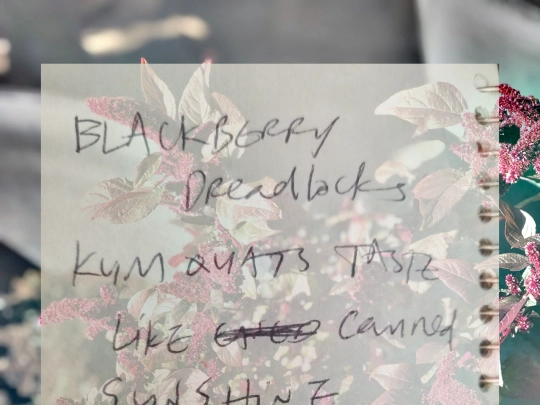 BLACKBERRY
Dreadlocks
KUMQUATS TASTE
LIKE Canned
SUNSHINE